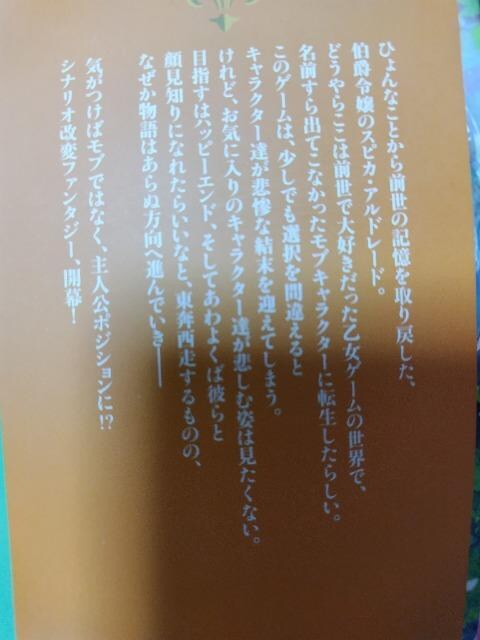 ひょんなことから前世の記憶を取り戻した、
伯爵令嬢のスピカ・アルドレード。
どうやらここは前世で大好きだった乙女ゲームの世界で、
名前すら出てこなかったモブキャラクターに転生したらしい。
このゲームは、少しでも選択を間違えると
キャラクター達が悲惨な結末を迎えてしまう。
けれど、お気に入りのキャラクター達が悲しむ姿は見たくない。
目指すはハッピーエンド、そしてあわよくば彼らと
顔見知りになれたらいいなと、東奔西走するものの、
なぜか物語はあらぬ方向へ進んでいき――
気がつけばモブではなく、主人公ポジションに!?
シナリオ改変ファンタジー、開幕!